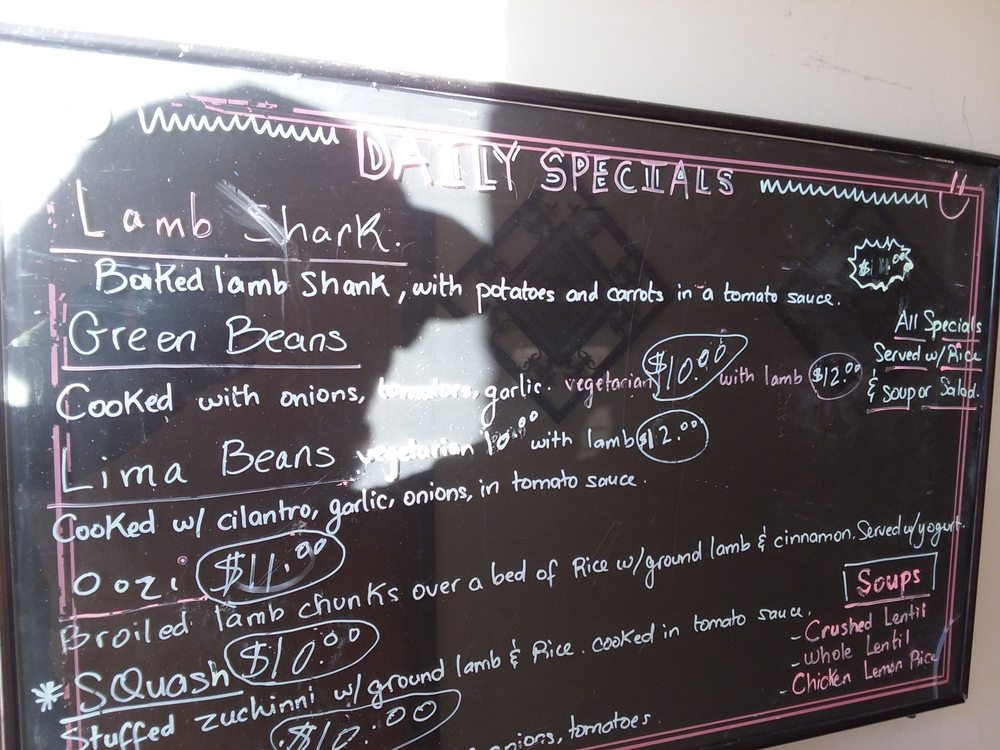 DAILY SPECIALS
Lamb Shark.
Baked lamb Shank, with potatoes and carrots in a tomato sauce.
Green Beans
Cooked with onions, tomatoes, garlic. vegetarian $10.00 with lamb $12.00
Lima Beans vegetarian 10.00 with lamb $12.00
Cooked w/ cilantro, garlic, onions, in tomato sauce.
Oozi $11.00
Broiled lamb chunks over a bed of Rice w/ground lamb & cinnamon. Served w/yogurt.
* SQuash $10.00
Stuffed zuchinni w/ground lamb & Rice. cooked in tomato sauce.
$10.00
onions, tomatoes.
All Specials
Served w/ Rice
& soup or Salad.
Soups
- Crushed Lentil
- Whole Lentil
- Chicken Lemon Rice